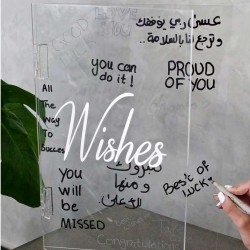 عسى ربي يوفقك
و ترجع لنا بالسلامة..
you can
do it!
PROUD
OF YOU
All
The
Way
To
Success
Wishes
You
will
be
MISSED
مبروك
ومنها
Best of
luck
Congratulations